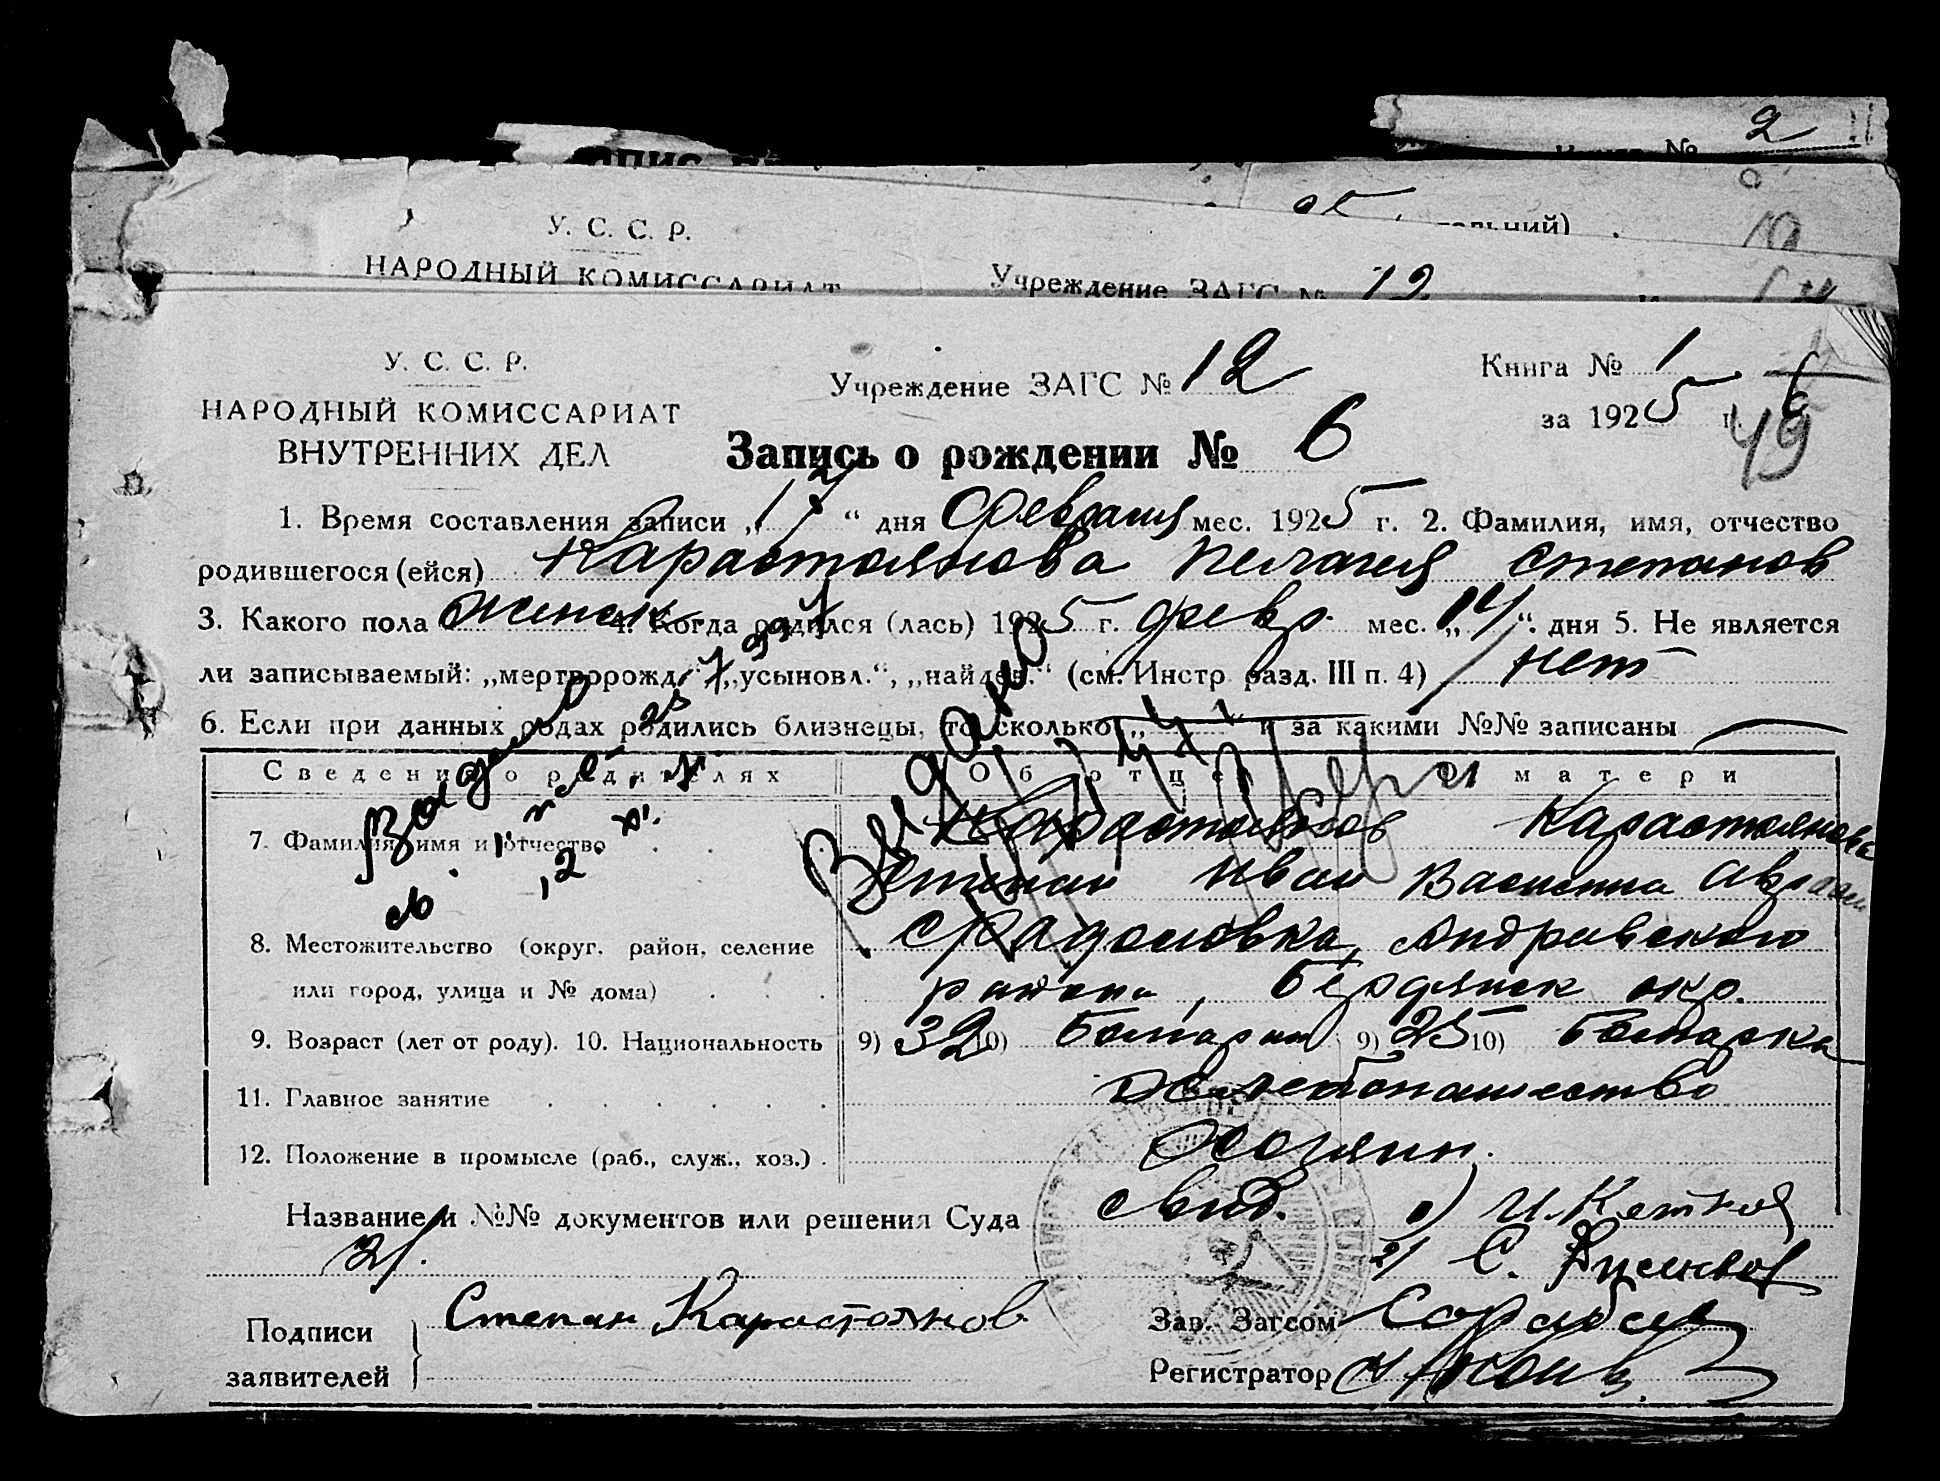 2
У. С. С. Р.
НАРОДНЫЙ КОМИССАРИАТ
Учреждение ЗАГС № 12
У. С. С. Р.
НАРОДНЫЙ КОМИССАРИАТ
ВНУТРЕННИХ ДЕЛ
Учреждение ЗАГС № 12
Книга № 1
за 1925 г.
6
49
Запись о рождении № 6
1. Время составления записи „17“ дня Февраля мес. 1925 г. 2. Фамилия, имя, отчество
родившегося (ейся) Карастоянова Пелагея Степанов
3. Какого пола женск. 4. Когда родился (лась) 1925 г. февр. мес. „14“ дня 5. Не является
ли записываемый: „мертворожд.“, „усыновл.“, „найден.“ (см. Инстр. разд. III п. 4) нет
6. Если при данных родах родились близнецы, то сколько „ “ и за какими №№ записаны
Сведения о родителях Об отце О матери
7. Фамилия, имя и отчество Карастоянов Карастоянова
Степан Иван Василина
8. Местожительство (округ, район, селение
или город, улица и № дома) района, Бердянск окр.
9. Возраст (лет от роду). 10. Национальность 9) 32 10) Болгарин 9) 25 10) Болгарка
11. Главное занятие хлебопашество
12. Положение в промысле (раб., служ., хоз.) Хозяин.
Выдано
Название и №№ документов или решения Суда свид.
2)
Подписи
заявителей
Степан Карастоянов
Зав. Загсом
Регистратор